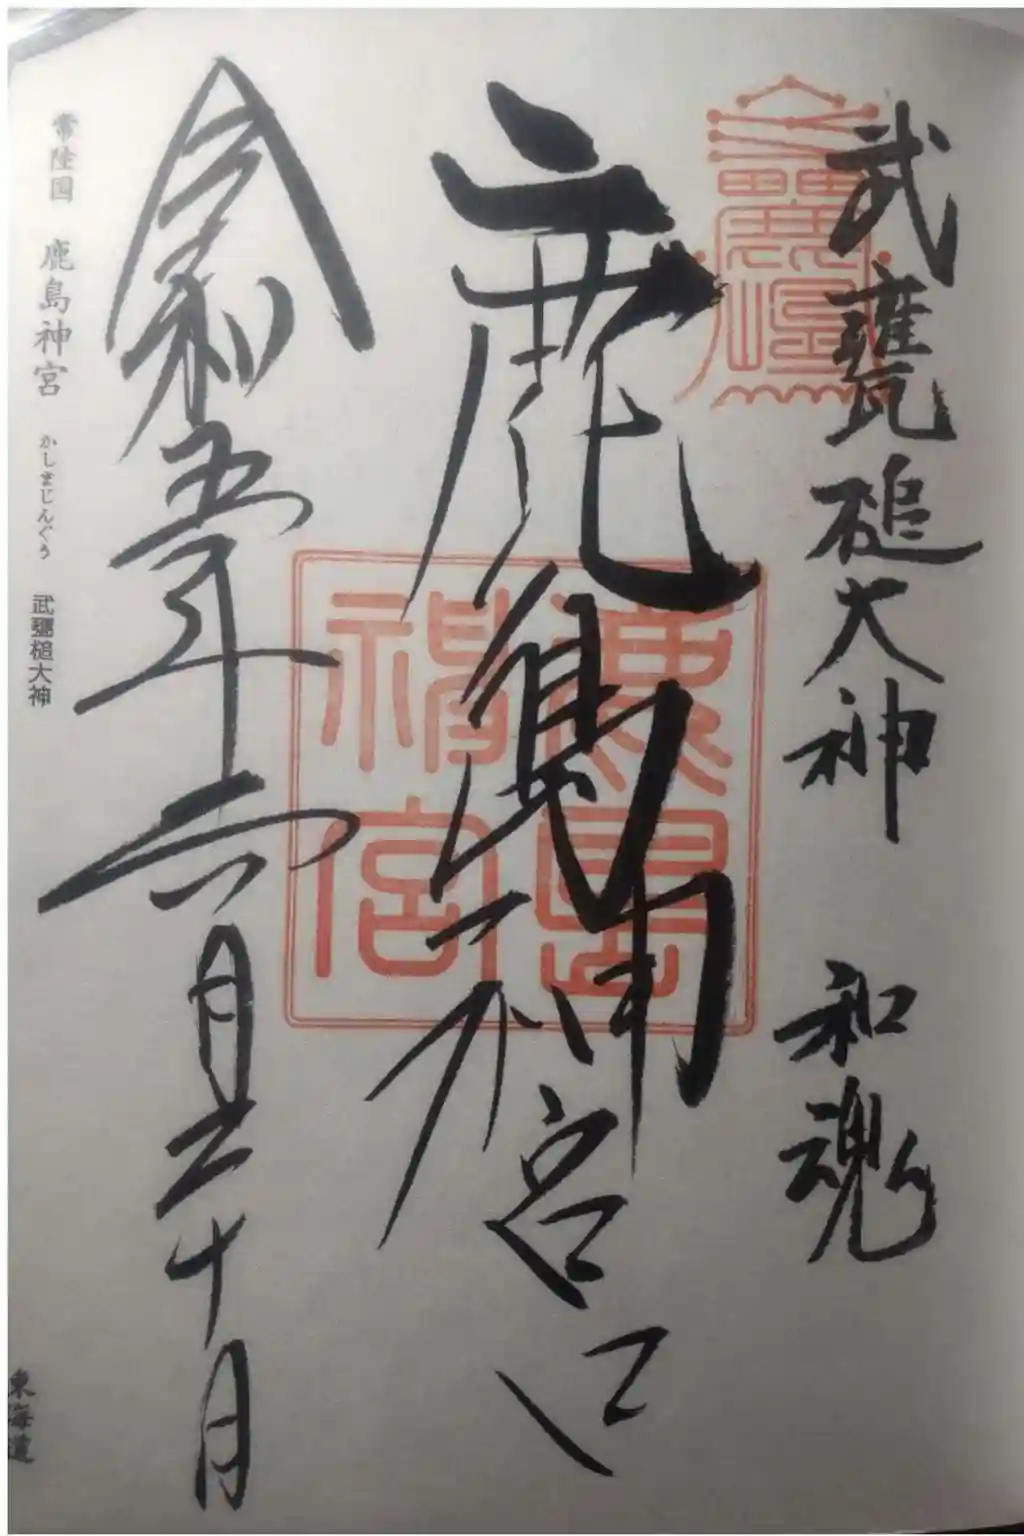 武甕槌大神 和魂
鹿島神宮
令和五年六月三十日
常陸国 鹿島神宮 かしまじんぐう 武甕槌大神
鹿島神宮
東海道